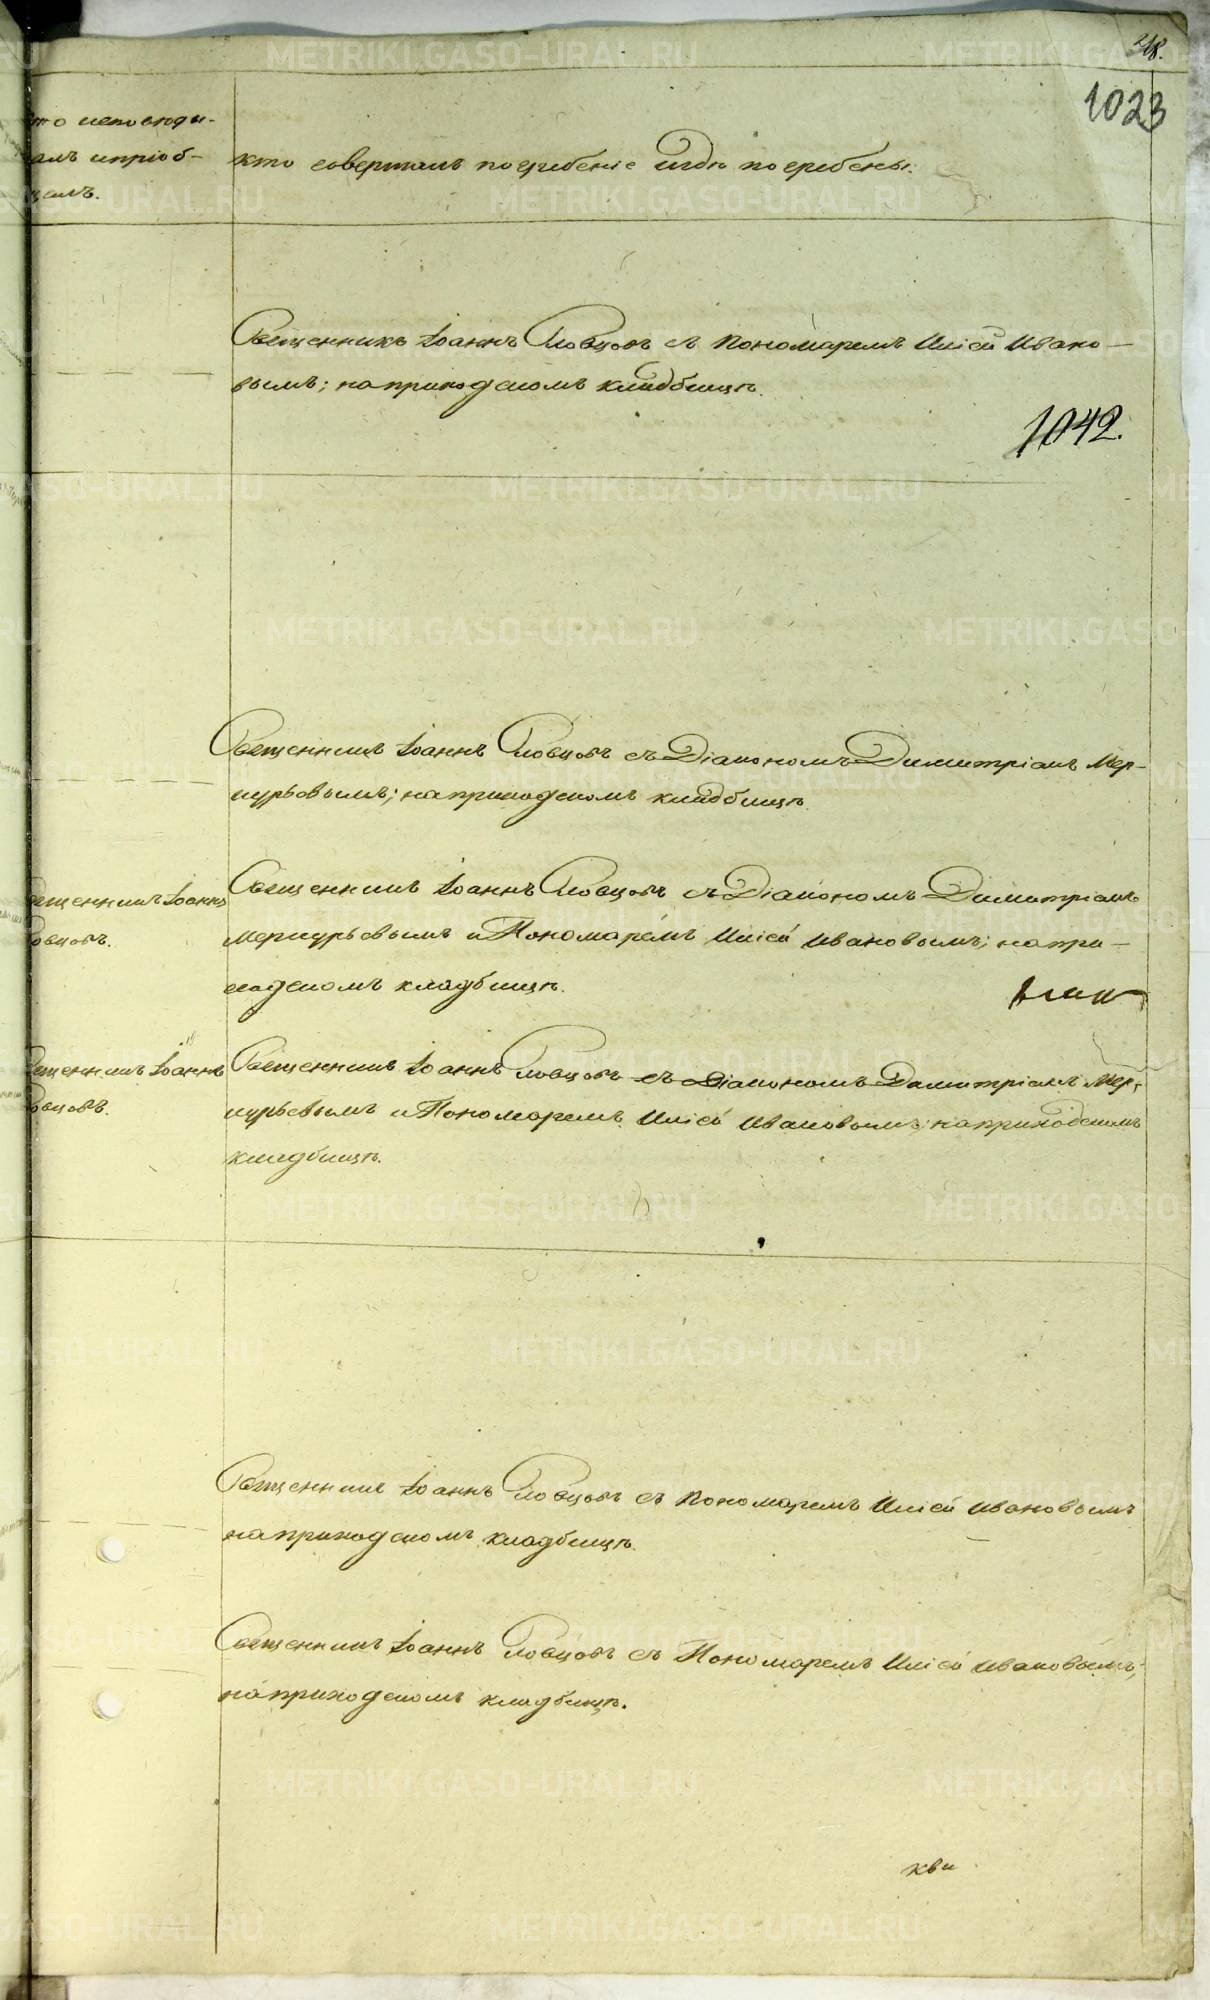 218.
1023
то исповѣды-
алъ и пріоб-
щалъ.
кто совершалъ погребеніе и гдѣ погребены.
Священникъ Іоаннъ Словцовъ съ пономаремъ Иліей Ивано-
вымъ; на приходскомъ кладбищѣ.
1042.
Священникъ Іоаннъ Словцовъ съ Діакономъ Димитріемъ Мер-
курьевымъ; на приходскомъ кладбищѣ.
Священникъ Іоаннъ
ловцовъ.
Священникъ Іоаннъ Словцовъ съ Діакономъ Димитріемъ
Меркурьевымъ и Пономаремъ Иліей Ивановымъ; на при-
ходскомъ кладбищѣ.
Священникъ Іоаннъ
ловцовъ.
Священникъ Іоаннъ Словцовъ съ Діакономъ Димитріемъ Мер-
курьевымъ и Пономаремъ Иліей Ивановымъ; на приходскомъ
кладбищѣ.
Священникъ Іоаннъ Словцовъ съ пономаремъ Иліей Ивановымъ
на приходскомъ кладбищѣ.
Священникъ Іоаннъ Словцовъ съ Пономаремъ Иліей Ивановымъ;
на приходскомъ кладбищѣ.
METRIKI.GASO-URAL.RU